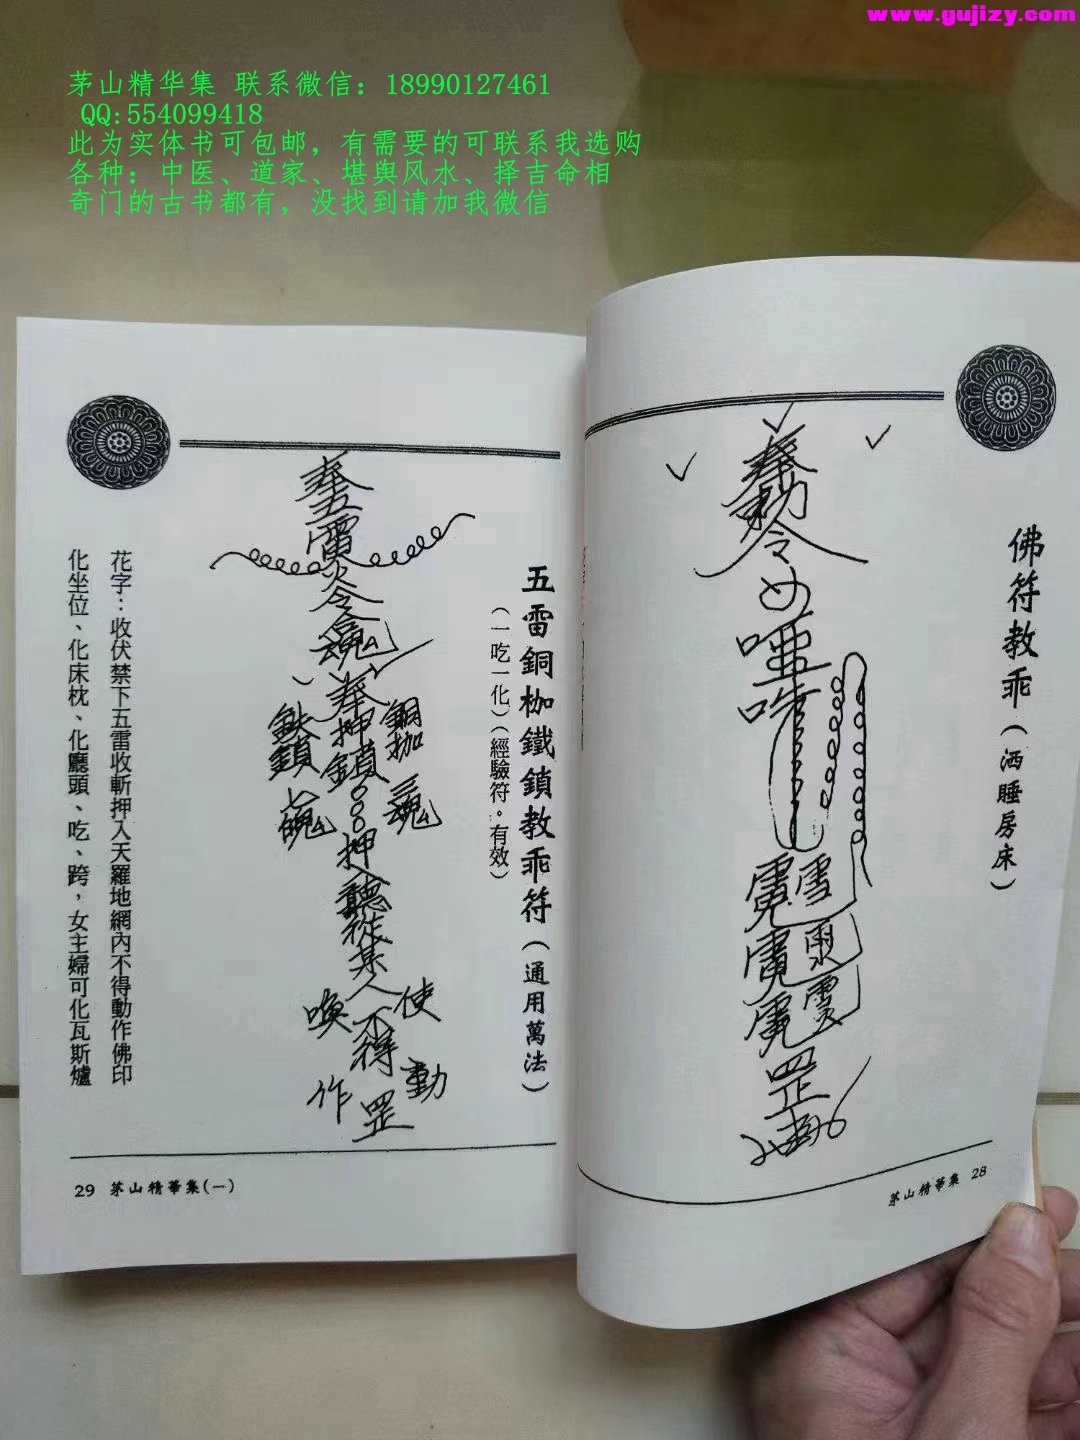 www.gujizy.com
茅山精华集 联系微信：18990127461
QQ:554099418
此为实体书可包邮，有需要的可联系我选购
各种：中医、道家、堪舆风水、择吉命相
奇门的古书都有，没找到请加我微信
佛符教乖（洒睡房床）
奉勅令
罡
茅山精華集 28
五雷銅枷鐵鎖教乖符（通用萬法）
（一吃一化）（經驗符。有效）
奉五雷火令魂
奉押鎖
銅枷三魂
鉄鎖七魄
押聽從某人不得
使動
喚作
罡
花字：收伏禁下五雷收斬押入天羅地網內不得動作佛印
化坐位、化床枕、化廳頭、吃、跨，女主婦可化瓦斯爐
29 茅山精華集(一)